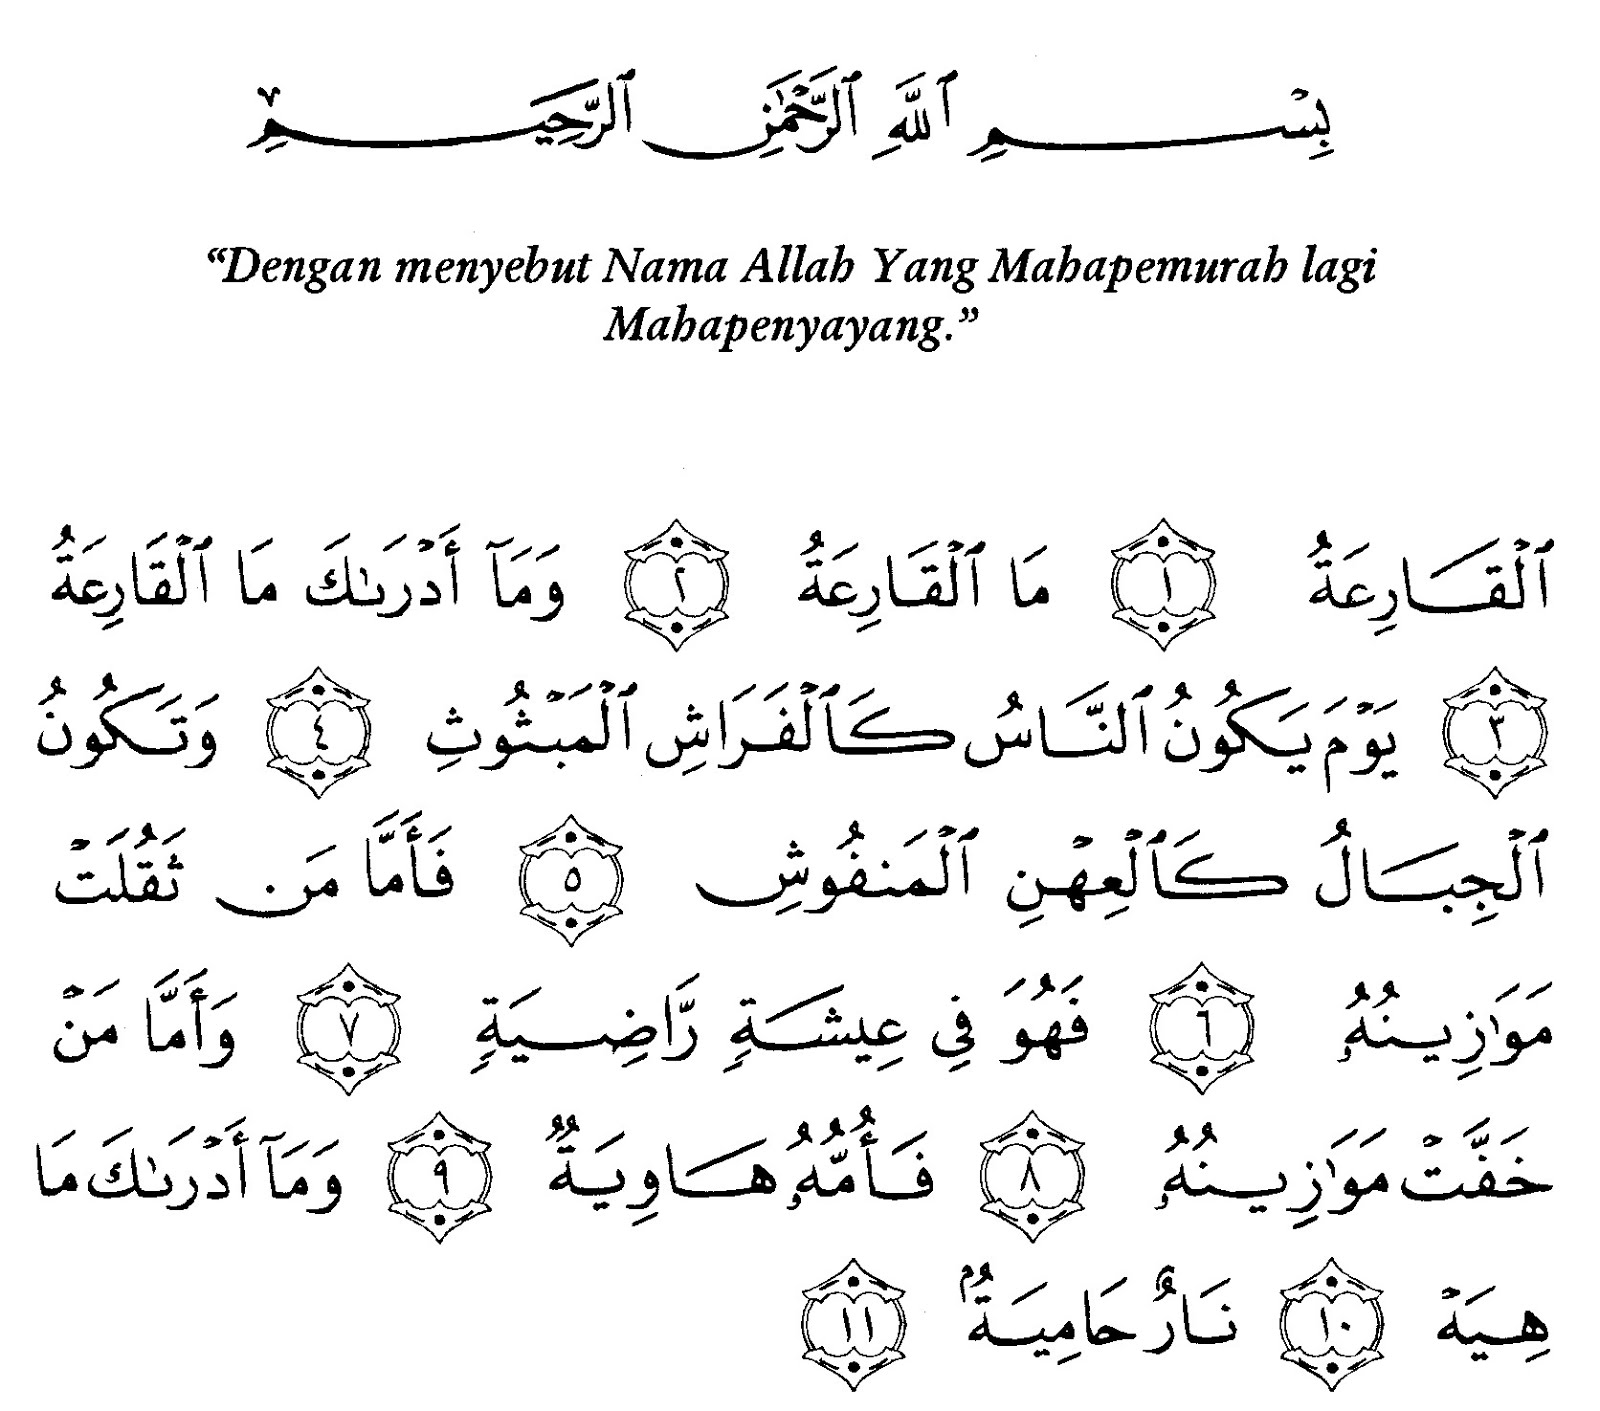 بِسْمِ ٱللَّهِ ٱلرَّحْمَٰنِ ٱلرَّحِيمِ
“Dengan menyebut Nama Allah Yang Mahapemurah lagi
Mahapenyayang.”
ٱلْقَارِعَةُ ١ مَا ٱلْقَارِعَةُ ٢ وَمَآ أَدْرَىٰكَ مَا ٱلْقَارِعَةُ
٣ يَوْمَ يَكُونُ ٱلنَّاسُ كَٱلْفَرَاشِ ٱلْمَبْثُوثِ ٤ وَتَكُونُ
ٱلْجِبَالُ كَٱلْعِهْنِ ٱلْمَنفُوشِ ٥ فَأَمَّا مَن ثَقُلَتْ
مَوَٰزِينُهُۥ ٦ فَهُوَ فِي عِيشَةٍ رَّاضِيَةٍ ٧ وَأَمَّا مَنْ
خَفَّتْ مَوَٰزِينُهُۥ ٨ فَأُمُّهُۥ هَاوِيَةٌ ٩ وَمَآ أَدْرَىٰكَ مَا
هِيَهْ ١٠ نَارٌ حَامِيَةٌۢ ١١